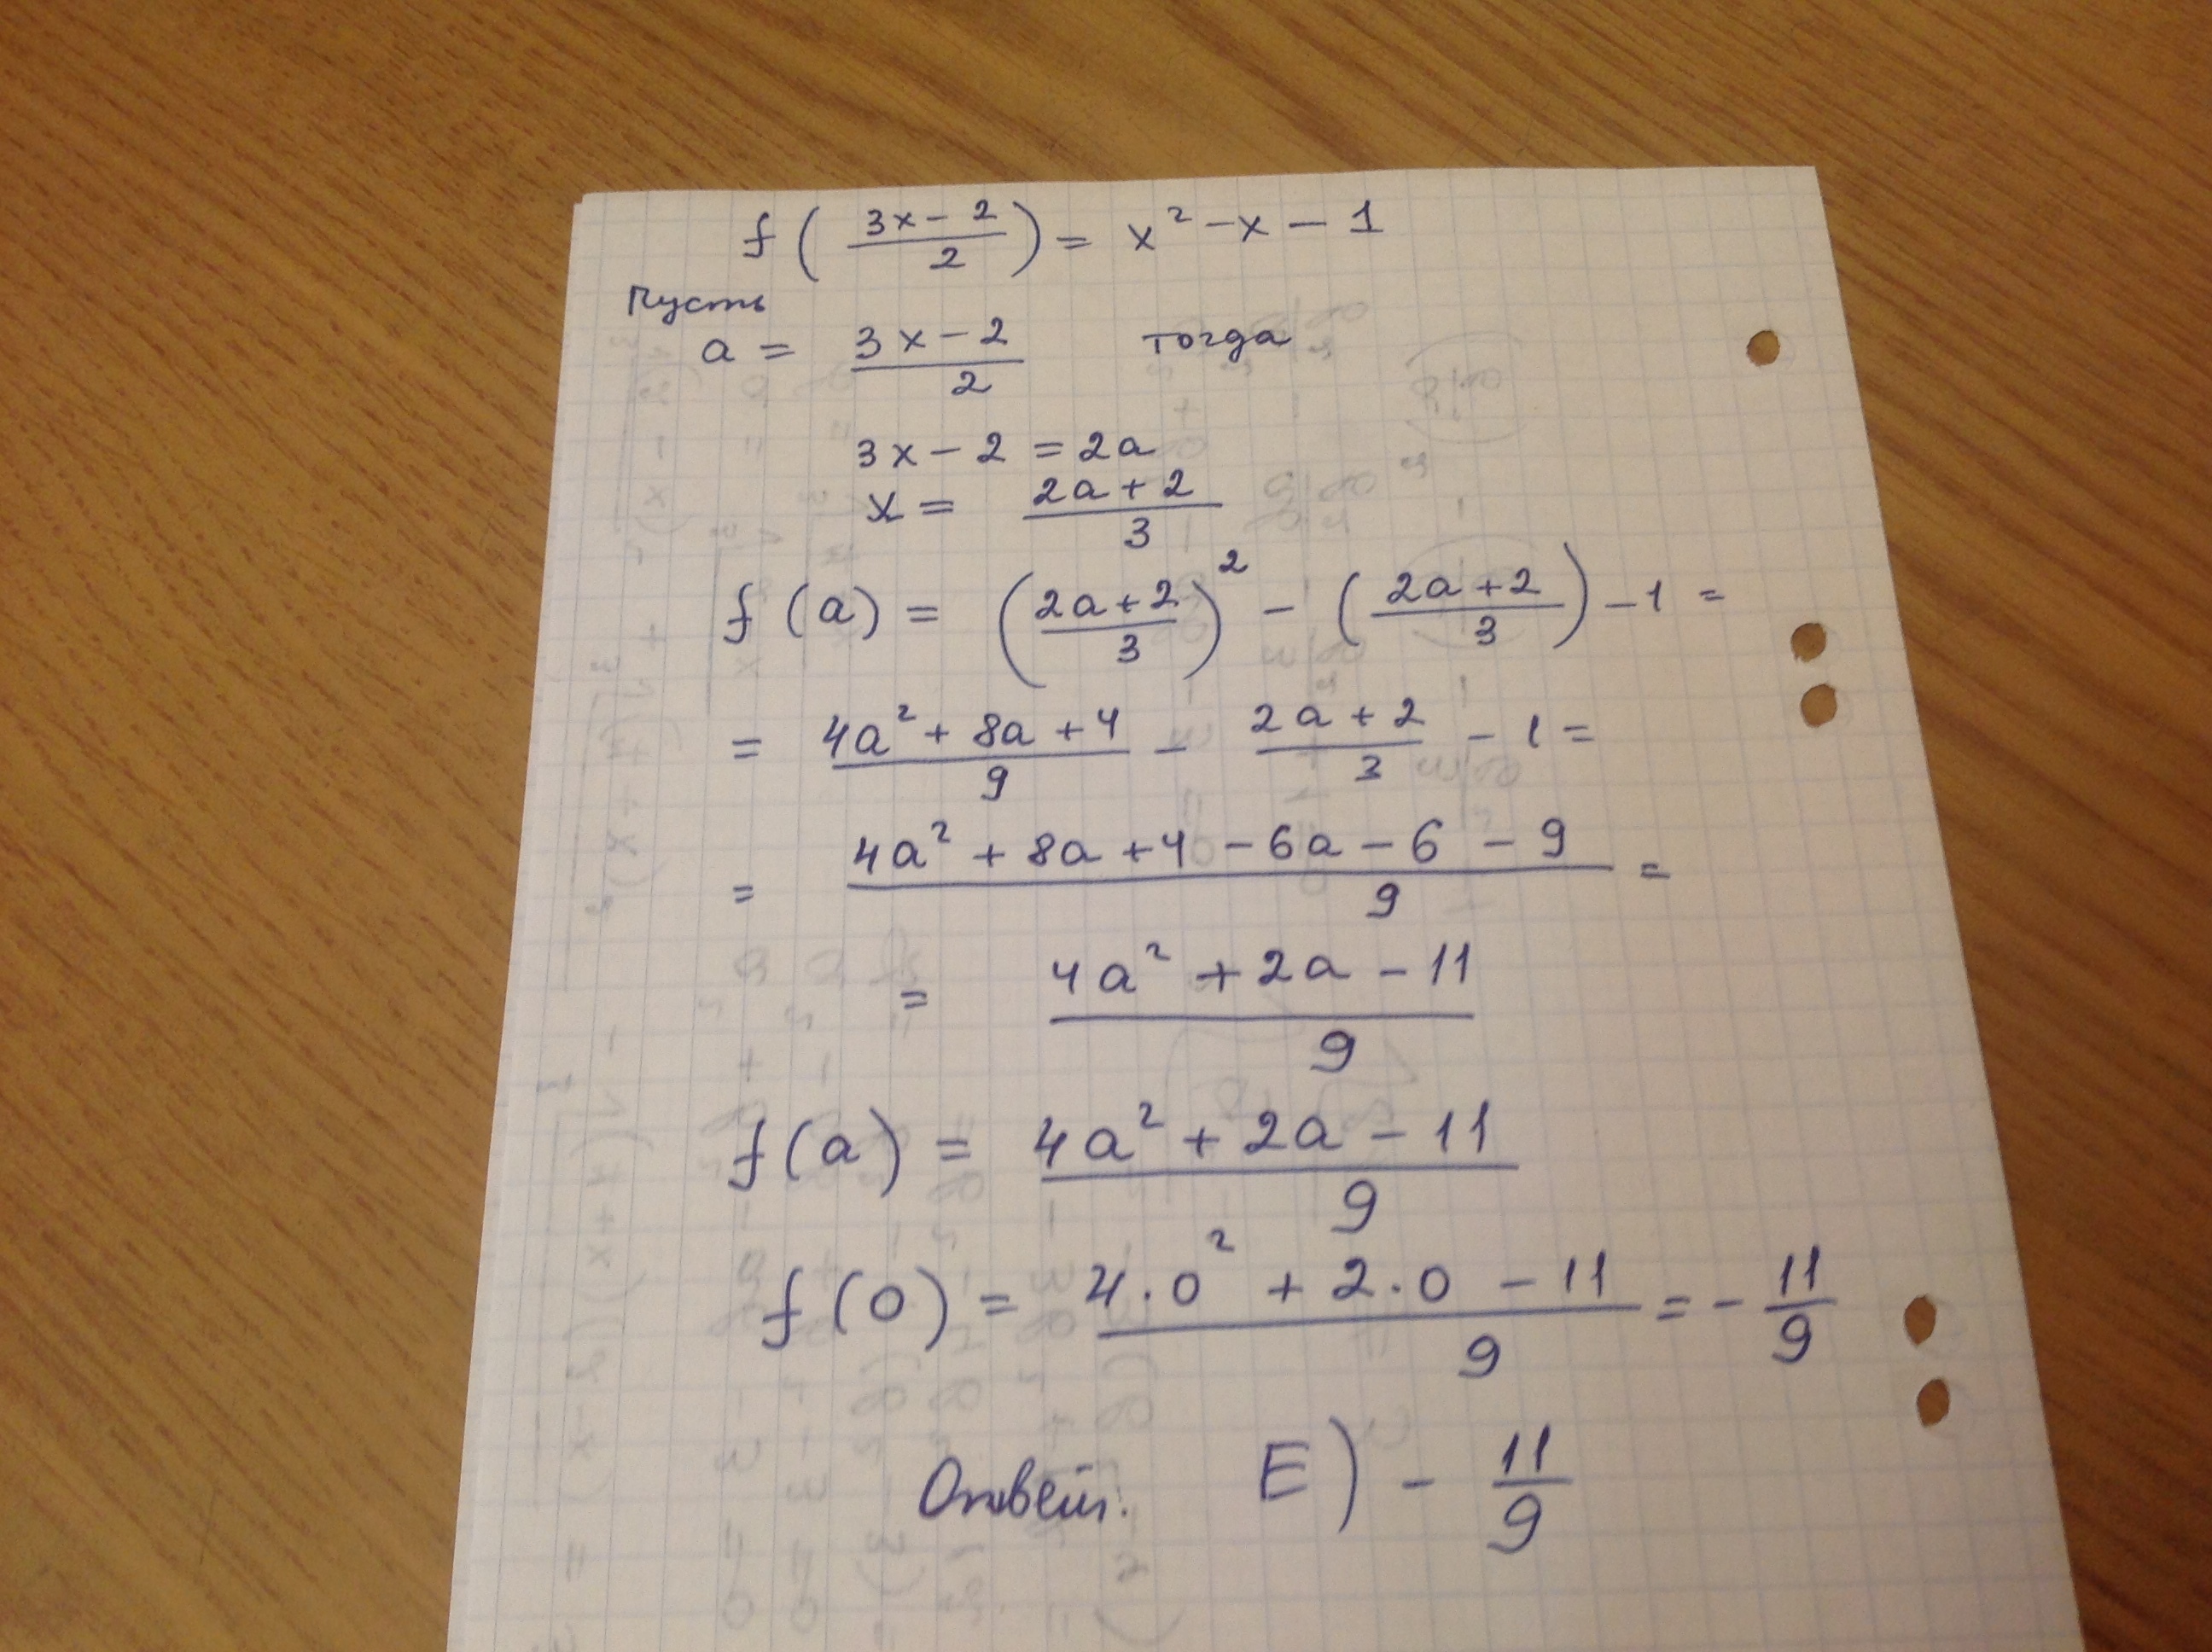 f ( (3x - 2)/2 ) = x² - x - 1
Пусть
a = (3x - 2)/2 тогда
3x - 2 = 2a
x = (2a + 2)/3
f (a) = ((2a + 2)/3)² - ((2a + 2)/3) - 1 =
= (4a² + 8a + 4)/9 - (2a + 2)/3 - 1 =
= (4a² + 8a + 4 - 6a - 6 - 9)/9 =
= (4a² + 2a - 11)/9
f(a) = (4a² + 2a - 11)/9
f(0) = (4·0² + 2·0 - 11)/9 = - 11/9
Ответ. E) - 11/9